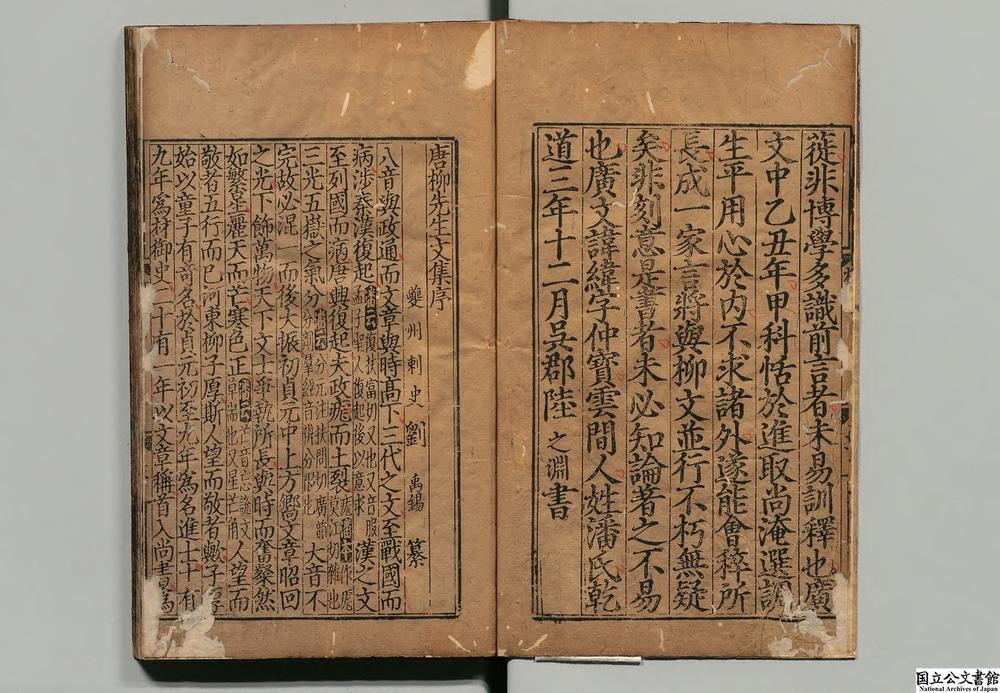 蓰非博學多識前言者未易訓釋也廣
文中乙丑年甲科恬於進取尚淹選調
生平用心於内不求諸外遂能會稡所
長成一家言將與柳文並行不朽無疑
矣非刻意是書者未必知論著之不易
也廣文諱緯字仲寶雲間人姓潘氏乾
道三年十二月吳郡陸之淵書
唐柳先生文集序
夔州刺史劉禹錫纂
八音與政通而文章與時高下三代之文至戰國而
病涉秦漢復起復扶富切又也又音服孟子聖人復起後以意求漢之文
至列國而病唐興復起夫政庬而土裂莫江切雜也
三光五嶽之氣分大音不
完故必混一而後大振初貞元中上方嚮文章昭回
之光下飾萬物天下文士爭執所長與時而奮粲然
如繁星麗天而芒寒色正芒音忘說文草耑也又星芒角人望而
敬者五行而已河東柳子厚斯人望而敬者歟子厚
始以童子有奇名於貞元初至九年爲名進士十有
九年爲材御史二十有一年以文章稱首入尚書爲
国立公文書館
National Archives of Japan